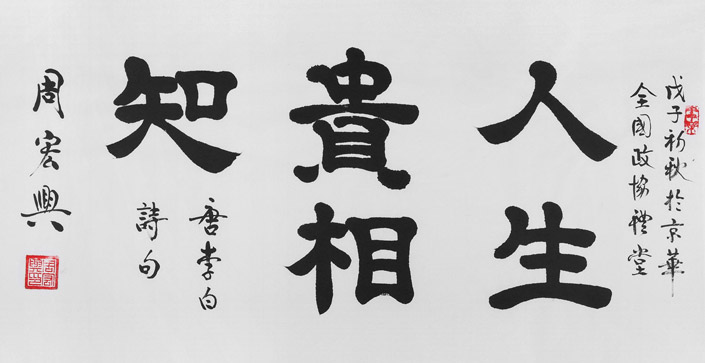 戊子初秋於京華
全國政協禮堂
人生
貴相
知
唐李白
詩句
周宏興